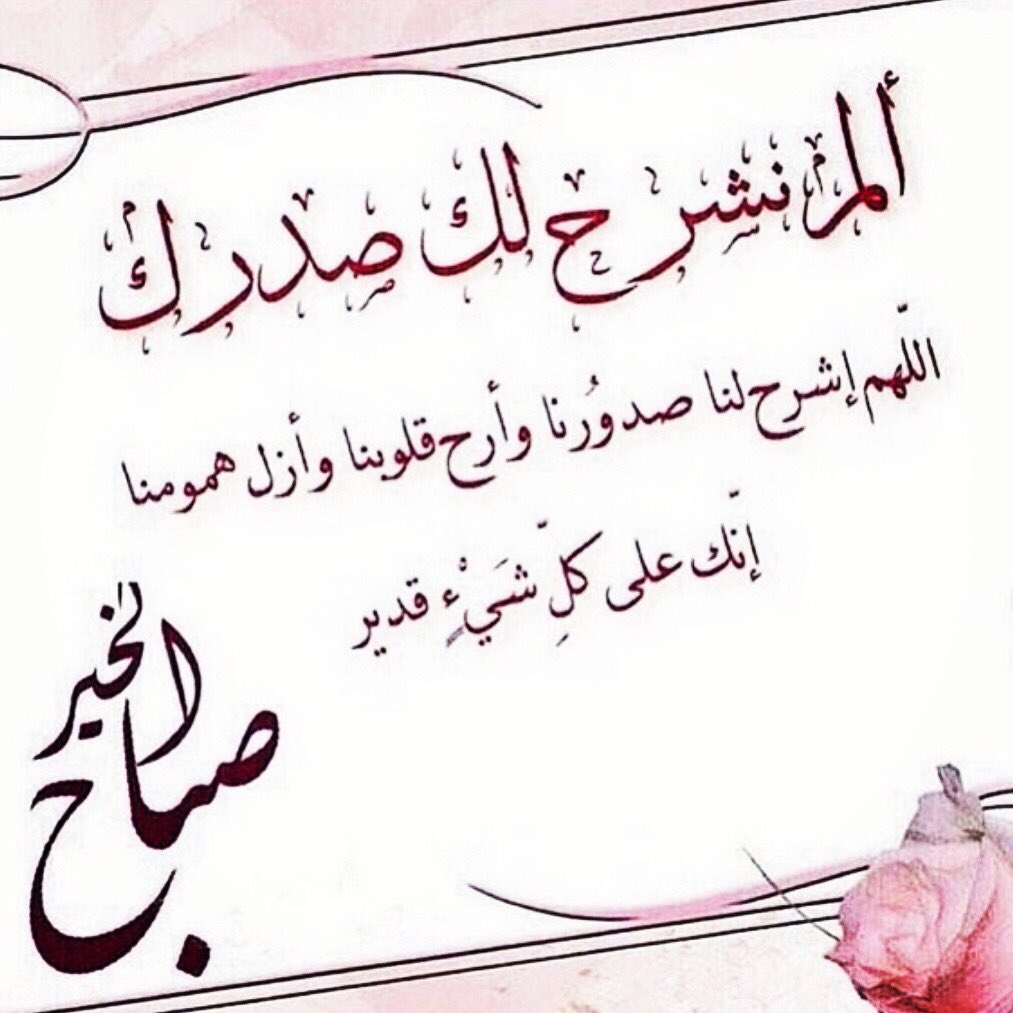 ألم نشرح لك صدرك
اللّهم إشرح لنا صدورُنا وأرح قلوبنا وأزل همومنا
إنّك على كلِّ شَيْءٍ قدير
صباح الخير